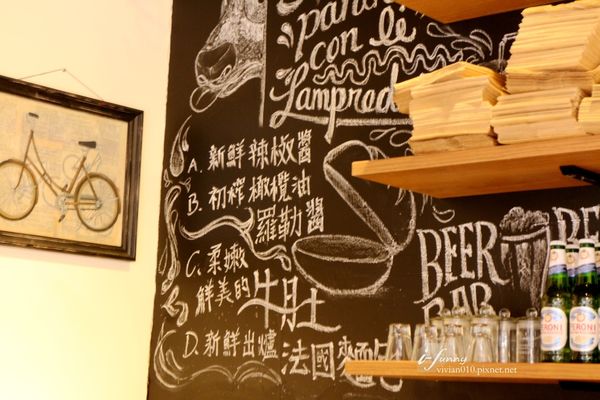 panino
con il
Lampredo
A. 新鮮辣椒醬
B. 初榨橄欖油
羅勒醬
C. 柔嫩
鮮美的牛肚
D. 新鮮出爐法國麵包
BEER
BAR
BEE
PERONI
PERONI
i-funny
vivian010.pixnet.net